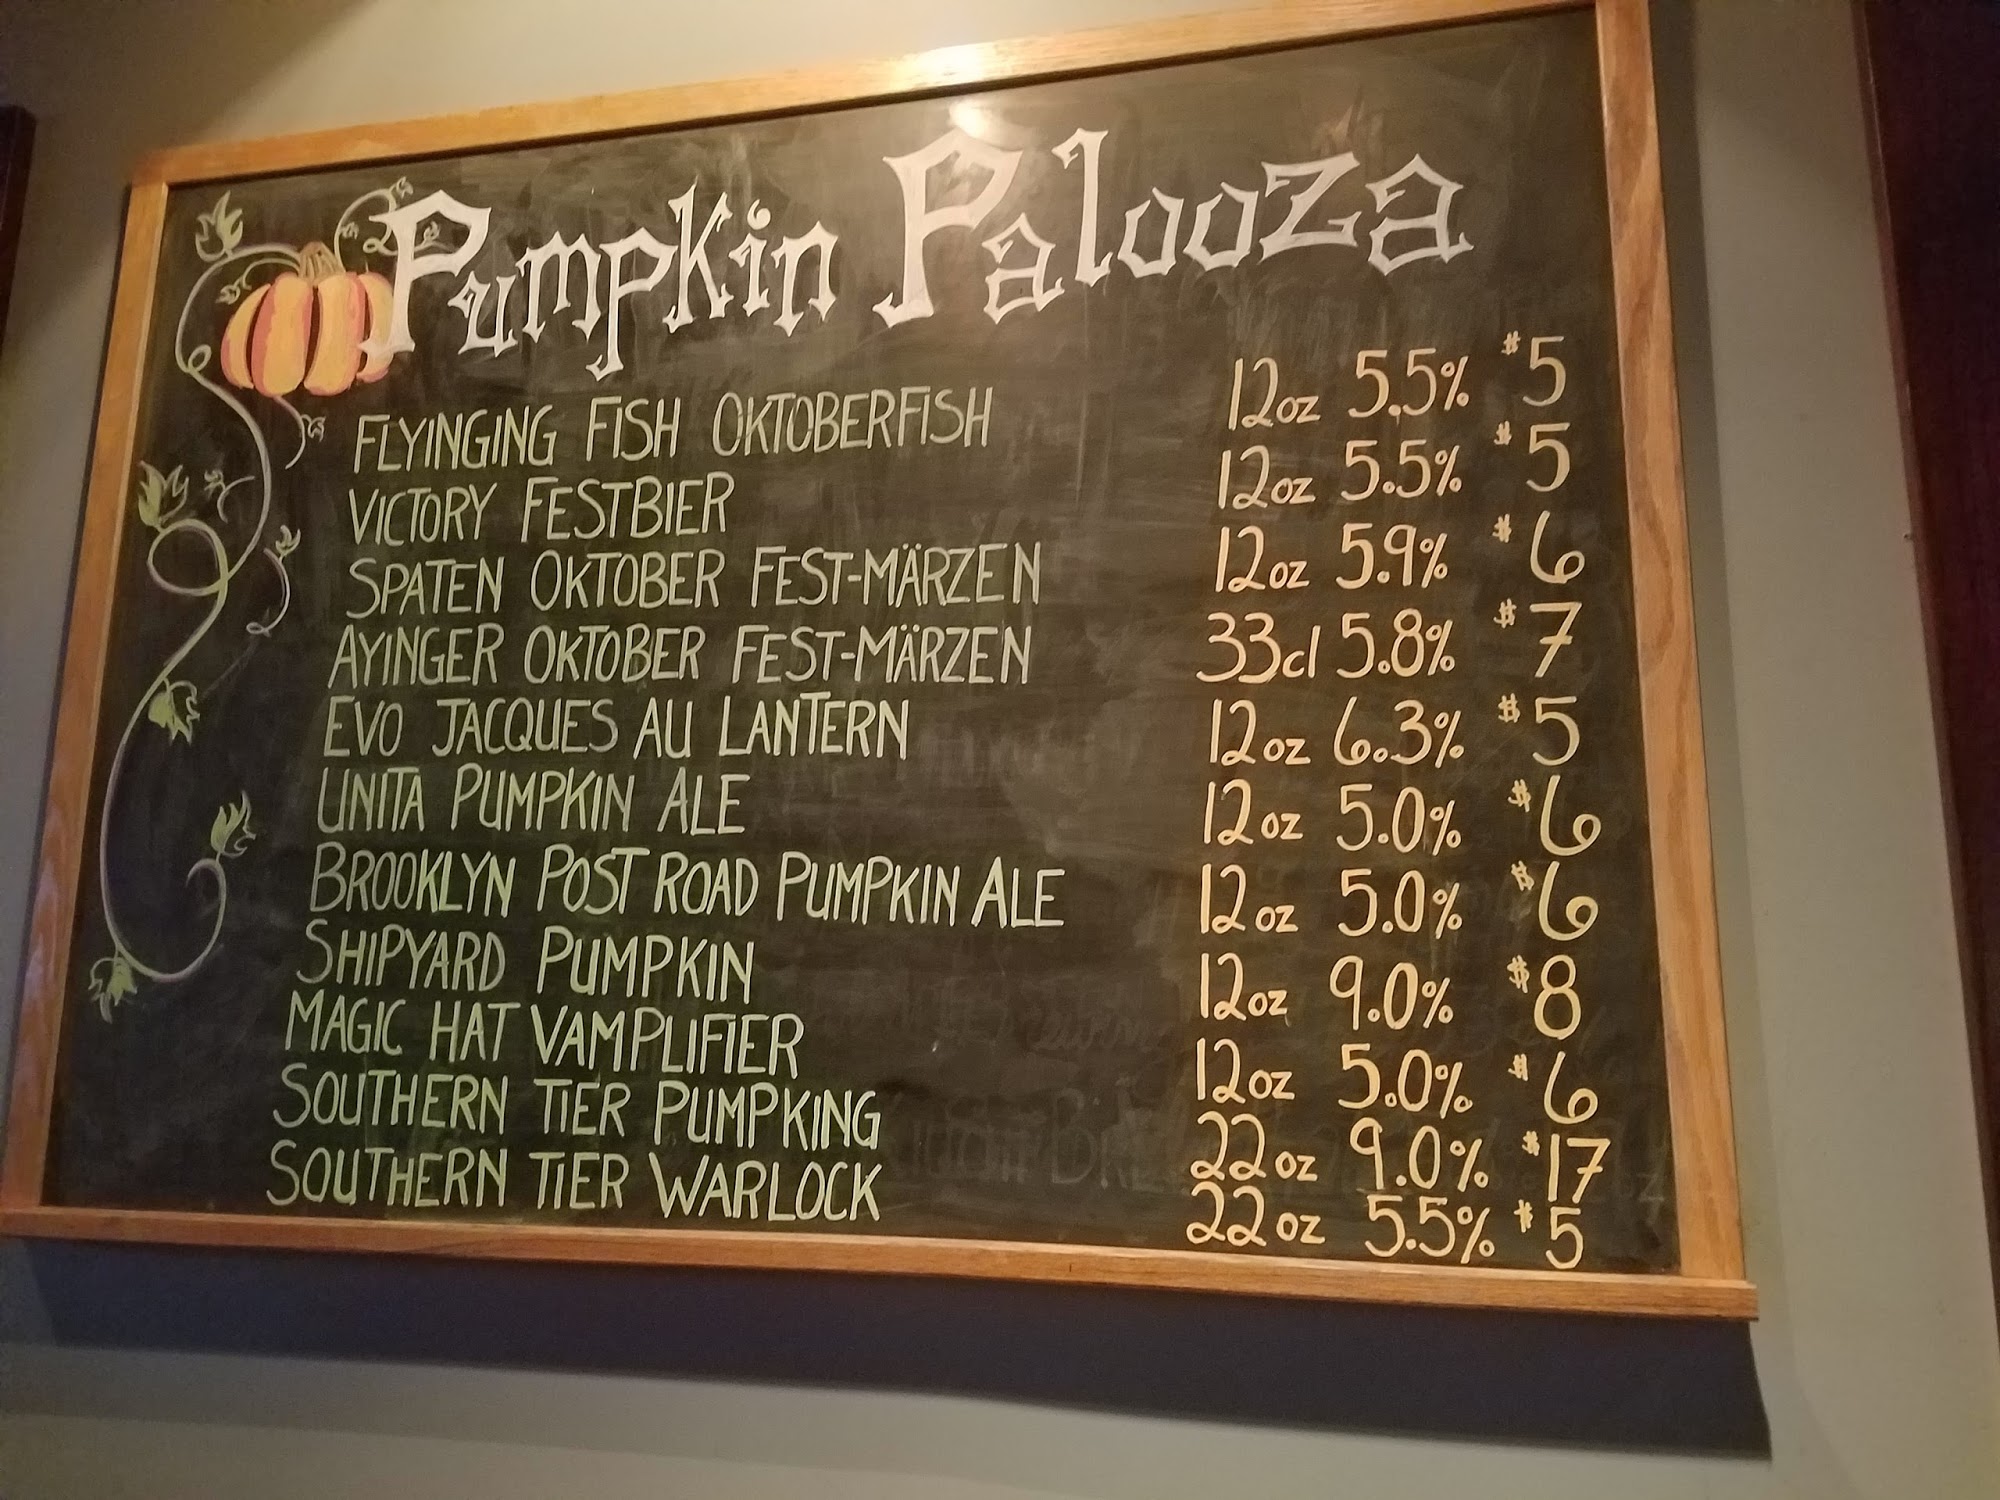 Pumpkin Palooza
FLYINGING FISH OKTOBERFISH 12oz 5.5% $5
VICTORY FESTBIER 12oz 5.5% $5
SPATEN OKTOBER FEST-MÄRZEN 12oz 5.9% $6
AYINGER OKTOBER FEST-MÄRZEN 33cl 5.8% $7
EVO JACQUES AU LANTERN 12oz 6.3% $5
UNITA PUMPKIN ALE 12oz 5.0% $6
BROOKLYN POST ROAD PUMPKIN ALE 12oz 5.0% $6
SHIPYARD PUMPKIN 12oz 9.0% $8
MAGIC HAT VAMPLIFIER 12oz 5.0% $6
SOUTHERN TIER PUMPKING 22oz 9.0% $17
SOUTHERN TIER WARLOCK 22oz 5.5% $5